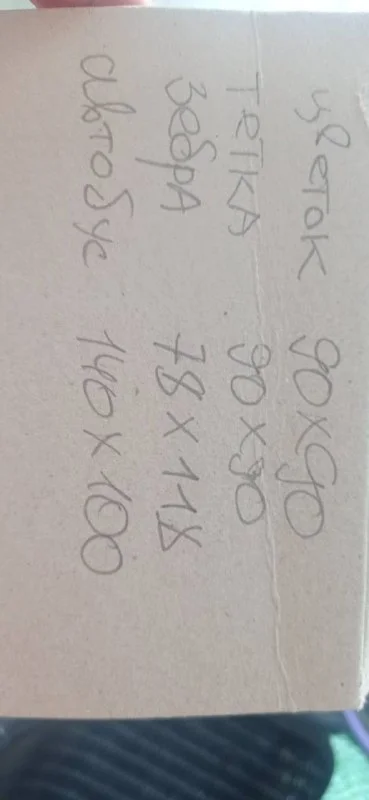 цветок 90x90
тетка 90x90
зебра 78x118
автобус 140x100